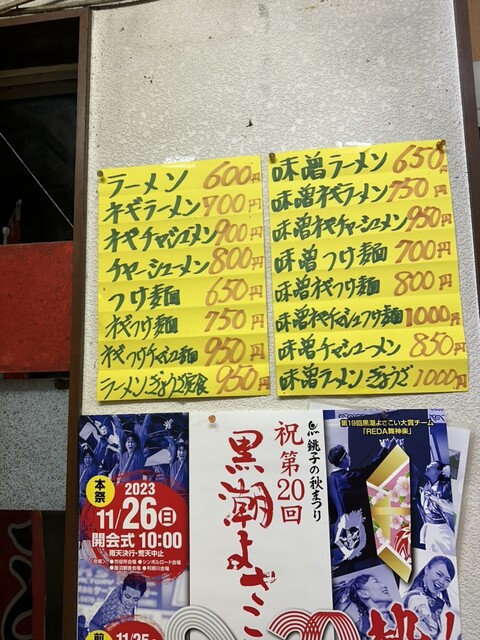 ラーメン 600円
ネギラーメン 700円
ネギチャーシューメン 900円
チャーシューメン 800円
つけ麺 650円
ネギつけ麺 750円
ネギつけチャーシュー麺 950円
ラーメンぎょうざ定食 950円
味噌ラーメン 650円
味噌ネギラーメン 750円
味噌ネギチャーシューメン 950円
味噌つけ麺 700円
味噌ネギつけ麺 800円
味噌ネギチャーシューつけ麺 1000円
味噌チャーシューメン 850円
味噌ラーメンぎょうざ 1000円
銚子の秋まつり
祝第20回
黒潮よさこ
第19回黒潮よさこい大賞チーム
「REDA舞神楽」
本祭
2023
11/26(日)
開会式 10:00
雨天決行・荒天中止
●市役所会場 ●シンボルロード会場
●銀河観音会場 ●利根川会場
前
11/25
20